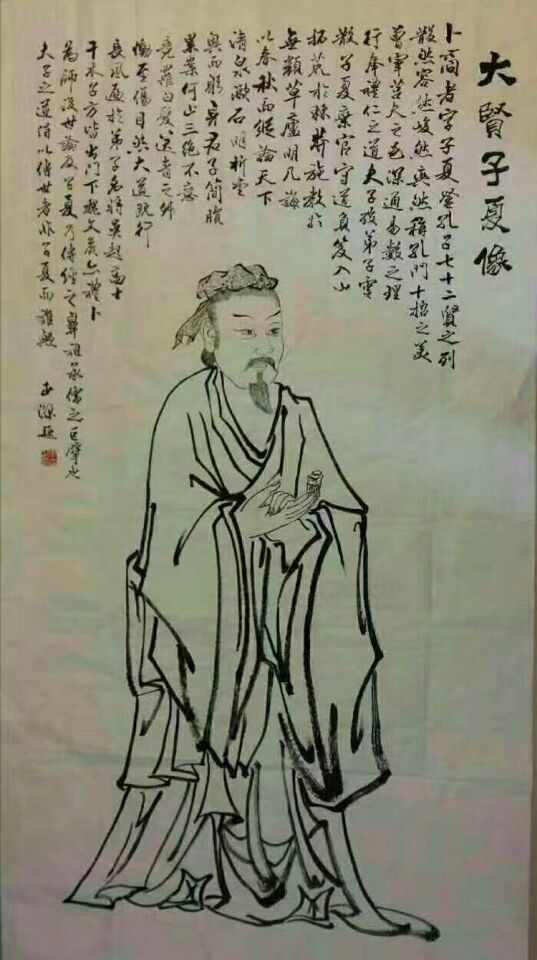 大賢子夏像
卜商者字子夏登孔子七十二賢之列
然容然峻然奐然稱孔門十哲之美
曾宰莒父之邑深通易數之理
行庠禮仁之道夫子歿弟子雲
散子夏棄官守道負笈入山
拓荒於林莽施教於
無類草廬明几誨
以春秋而縱論天下
清泉漱石明析玄
奧而躬身君子簡牘
累案何止三絕不意
竟罹白髮送青之殤
慟至傷目然大道既行
長風遍於弟子將吳起高士
干木子方皆出門下魏文侯亦禮卜
為師後世論及子夏乃傳經之鼻祖承儒之巨擘也
夫子之道得以傳世者非子夏而誰歟 深題